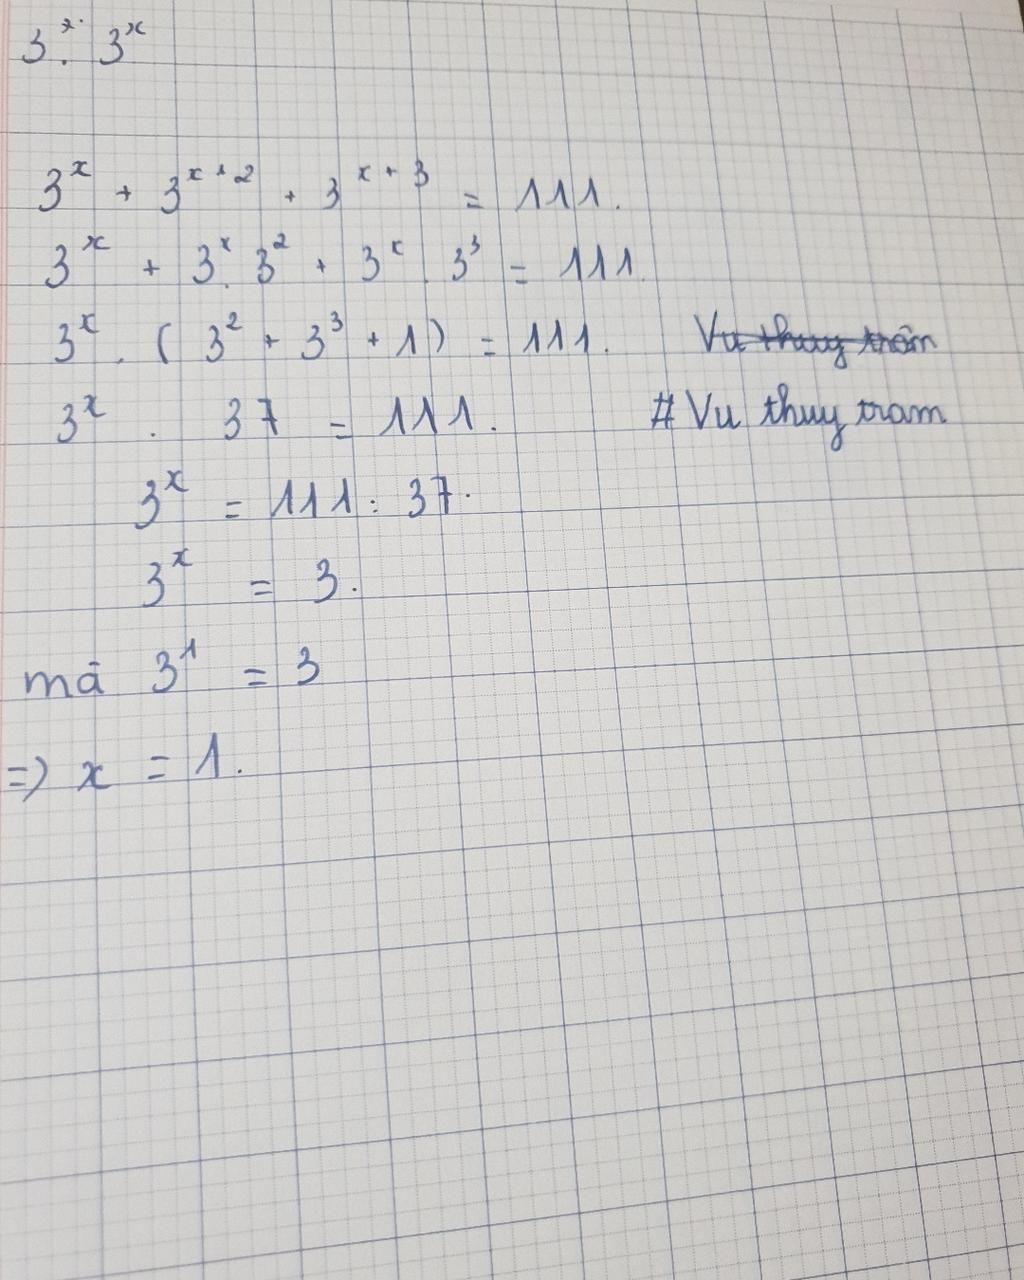 3ˣ. 3ˣ
3ˣ + 3ˣ⁺² + 3ˣ⁺³ = 111.
3ˣ + 3ˣ. 3² + 3ˣ. 3³ = 111.
3ˣ . ( 3² + 3³ + 1 ) = 111. Vu thuy trâm
3ˣ . 37 = 111. # Vu thuy tram
3ˣ = 111 : 37.
3ˣ = 3.
mà 3¹ = 3
=> x = 1.